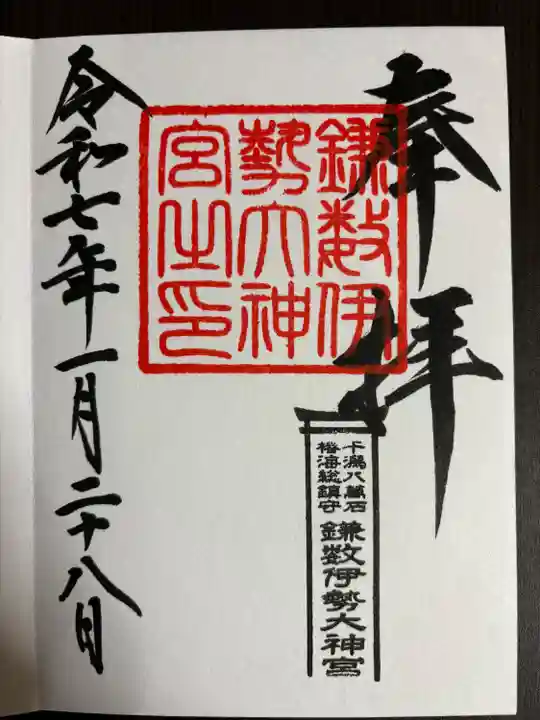 奉拝
鎌数伊
勢大神
宮之印
干潟八萬石
椿海総鎮守
鎌数伊勢大神宮
令和七年一月二十八日